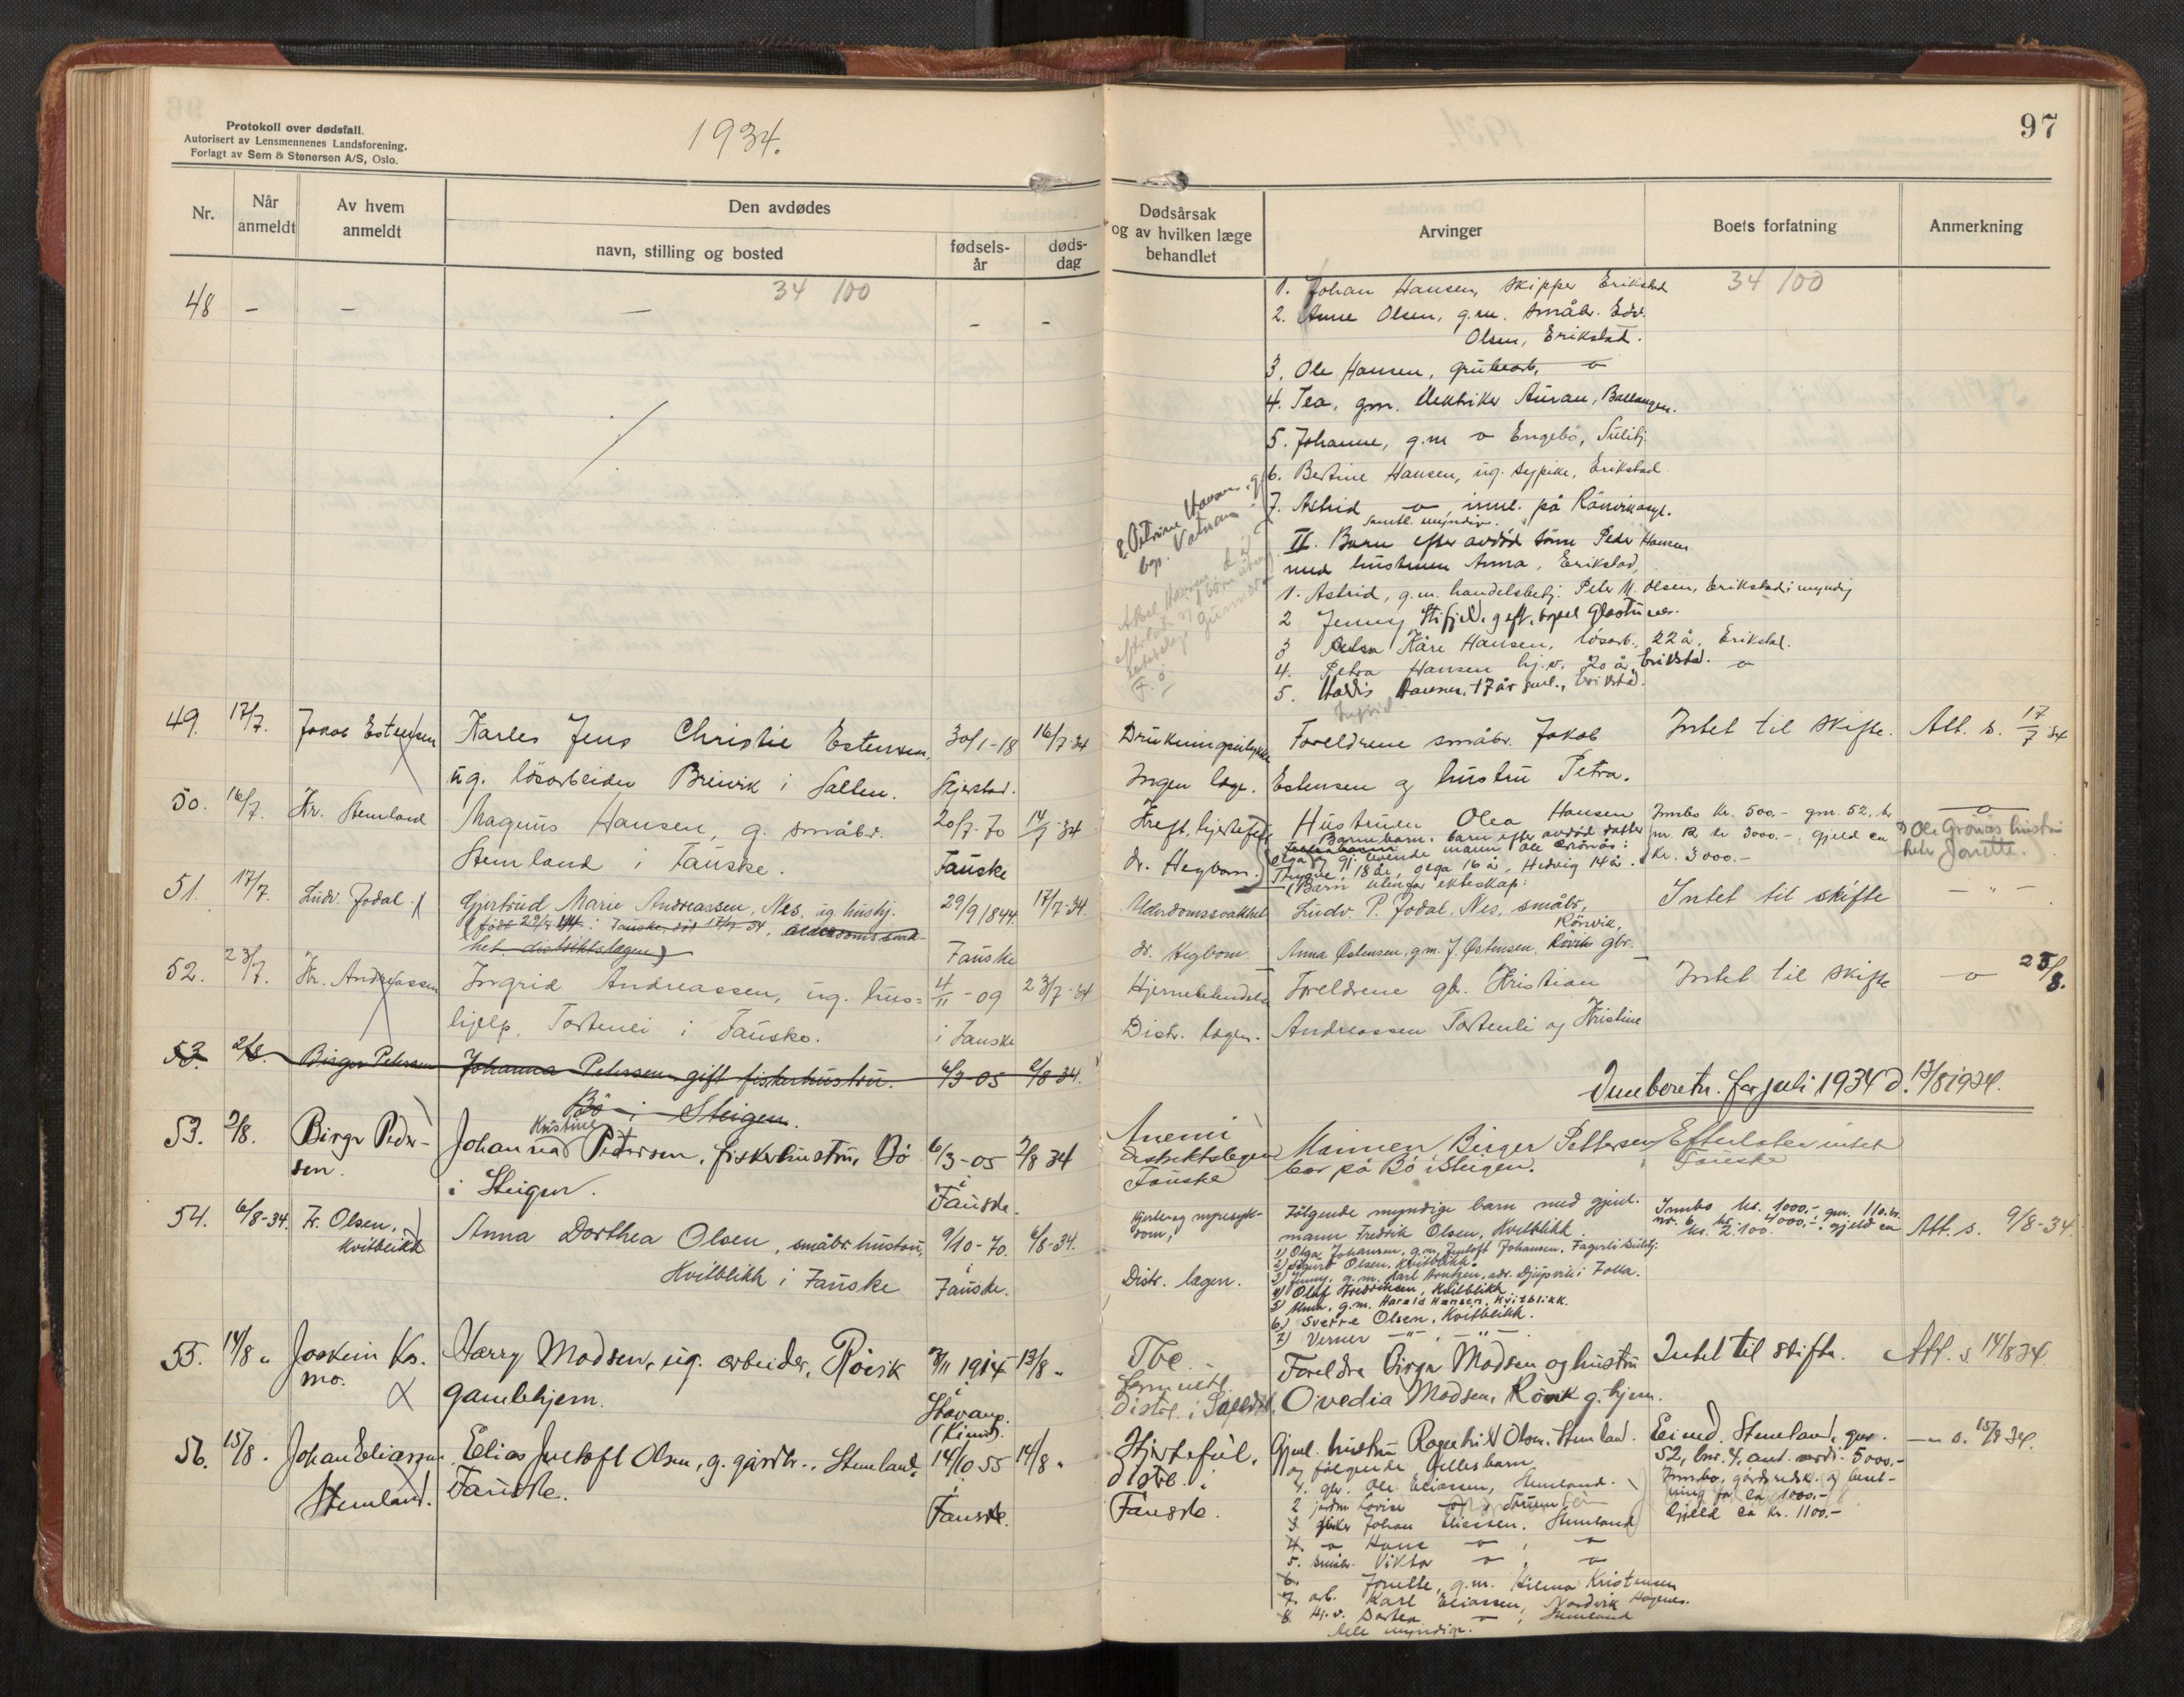 Protokoll over dødsfall.
Autorisert av Lensmennenes Landsforening.
Forlagt av Sem & Stenersen A/S, Oslo.
1934.
97
Nr.
Når anmeldt
Av hvem anmeldt
Den avdødes
navn, stilling og bosted
fødsels-år
døds-dag
Dødsårsak og av hvilken læge behandlet
Arvinger
Boets forfatning
Anmerkning
34 100
34 100
48 - - - - -
1. Johan Hansen, skipper Erikstad
2. Anne Olsen, g.m. småbr. Edv.
Olsen, Erikstad.
3. Ole Hansen, grubearb, -o-
4. Tea, gm. elektriker Auran, Ballangen.
5. Johanne, g.m -o- Engebö, Sulitj.
6. Bertine Hansen, ug. sypike, Erikstad
7. Astrid -o-, innl. på Rönvik asyl.
samtl. myndige.
II. Barn efter avdöd sönn Peder Hansen
med hustruen Anna, Erikstad,
1. Astrid, g.m. handelsbetj. Peter M. Olsen, Erikstad, myndig
2 Jenny
3 Kåre Hansen, lösarb., 22 år, Erikstad.
4. Petra Hansen hj.v. 20 år, Erikstad. -o-
5. Hansen, 17 år gml., Erikstad.
Ingrid
8. Petrine Hansen, g
49. 17/7. Jakob Estensen
Karles Jens Christie Estensen,
30/1-18 16/7-34
ug. lösarbeider Breivik i Salten.
Skjerstad.
Drukningsulykke
Ingen læge.
Foreldrene småbr. Jakob
Estensen og hustru Petra.
Intet til skifte.
Att. s. 17/7 34
50. 16/7. Kr. Stemland
Magnus Hansen, g. småbr.
20/7-70 14/7-34
Stemland i Fauske.
Fauske
Kreft, hjertefeil
dr. Hegbom.
Hustruen Olea Hansen
Barnebarn, barn efter avdöd datter
Olga og gj. levende mann Ole Grönås:
Trygve, 18 år, Olga 16 år, Hedvig 14 år.
Innbo kr. 500,- gm. 52, br
nr. 12 kr 3000.-, gjeld ca
kr. 3000.-
-o-
Ole Grönås hustru
heter Jonette.
51. 17/7. Ludv. Jodal.
Gjertrud Marie Andreassen, Nes, ug. hushj.
29/9 1844. 17/7-34.
(född 29/9 44 i Fauske, död 17/7 34. Alderdomssvak-
het distriktslægen)
Fauske
Alderdomssvakhet
dr. Hegbom.
(Barn utenfor ekteskap:
Ludv. P. Jodal, Nes, småbr,
Rönvik,
Anna Østensen, g.m. J. Østensen, Rövik gbr.
Intet til skifte
- " -
52. 23/7. Kr. Andreassen
Ingrid Andreassen, ug. hus-
4/11-09 23/7-34
hjelp, Tortenli i Fauske.
i Fauske
Distr. lægen.
Foreldrene gbr. Kristian
Andreassen Tortenli og Kristine
Intet til skifte
-o- 25/8.
53. 2/8. Birger Petersen
Johanna Petersen, gift fiskerhustru.
6/3-05 2/8-34.
Bö i Steigen.
Innberetn. for juli 1934 d. 13/8 1934.
53. 2/8. Birger Peder-
sen.
Kristine
Johanna Petersen, fiskerhustru, Bö
i Steigen.
6/3-05 2/8 34
i
Fauske.
Anemi
Distriktslegen
Fauske
Mannen, Birger Pettersen
bor på Bö i Steigen.
Efterlater intet
Fauske
54. 6/8-34. Fr. Olsen,
Kvitblikk
Anna Dorthea Olsen, småbr. hustru,
9/10-70. 6/8-34.
Kvitblikk i Fauske
i
Fauske.
Hjerte og nyresyk-
dom,
Distr. lægen.
Følgende myndige barn med gjenl.
mann Fredrik Olsen, Kvitblikk
1) Olga Johansen, g.m. Johansen, Fagerli Sulitj:
2) Sigurd Olsen, Kvitblikk
3) Jenny, g.m. Karl Arntzen, adr. Djupvik i Folla.
4) Olaf Fredriksen, Kvitblikk
5) Alma, g.m. Harald Hansen, Kvitblikk.
6) Sverre Olsen, Kvitblikk.
7) Verner -"-, -"-
Innbo kr. 1000,-, gm. 110, br.
nr. 6, kr. 4000,-, gjeld ca
kr. 2.100.
Att. s. 9/8-34.
55. 14/8 " Joakim Ks.
mo.
Harry Madsen, ug. arbeider, Rövik
gamlehjem.
1914 13/8 "
i
Tbc.
Foreldre Birger Madsen og hustru
Ovedia Madsen, Rövik g. hjem.
Intet til skifte.
Att. s. 14/8 34.
56. 15/8. Johan Eliassen
Stemland.
Elias Justoft Olsen, g. gårdbr., Stemland,
Fauske.
14/10 55 14/8 "
i
Fauske.
Hjertefeil,
distl. i
Fauske.
Gjenl. hustru Ragnhild Olsen, Stemland.
og følgende fellesbarn
1. gbr. Ole Eliassen, Stemland.
2 jordm Lovise
3 fisker Johan Eliassen, Stemland
4. -o- Hans -o-, -o-
5. småbr. Viktor -o-, -o-
6. Jonette, g.m. Hilmar Kristensen
7. arb. Karl Eliassen, Nordvik
8 Hj.v. Dortea -o-, Stemland
Alle myndige.
Eiend. Stemland, gnr.
52, bnr. 4, ant. verdi. 5000,-
Innbo, gårdsredsk. og beset-
ning for ca 1000.-
Gjeld ca kr. 1100.-
-"- s. 15/8 34.